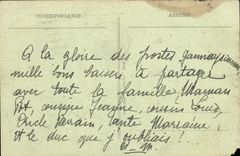 CORRESPONDANCE ADRESSE
A la gloire des postes
mille bons baisers à partager
avec toute la famille Maman
cousine Jeanne, cousin Louis
Oncle parrain, tante Marraine,
et le duc que j'oubliais !